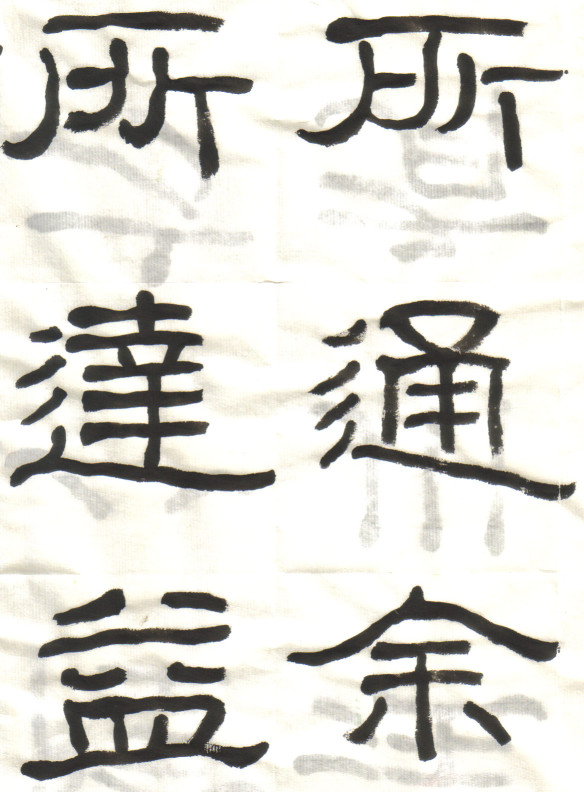 所通余
所達益